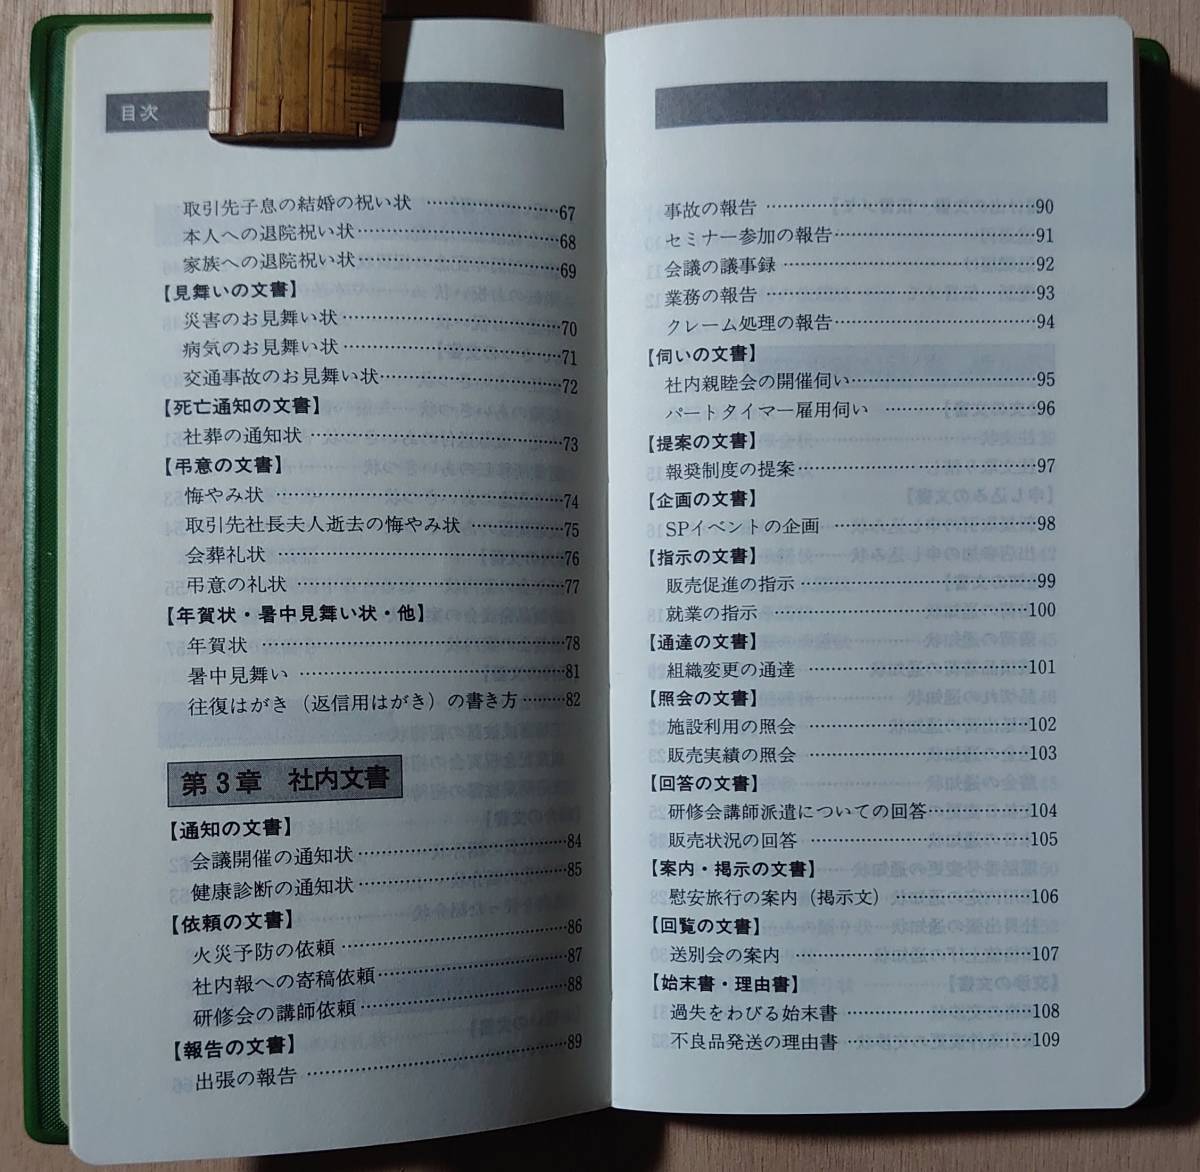 目次
取引先子息の結婚の祝い状 …………………67
本人への退院祝い状…………………………68
家族への退院祝い状…………………………69
【見舞いの文書】
災害のお見舞い状 ……………………………70
病気のお見舞い状 ……………………………71
交通事故のお見舞い状………………………72
【死亡通知の文書】
社葬の通知状 …………………………………73
【弔意の文書】
悔やみ状 ………………………………………74
取引先社長夫人逝去の悔やみ状 ……………75
会葬礼状 ………………………………………76
弔意の礼状 ……………………………………77
【年賀状・暑中見舞い状・他】
年賀状 …………………………………………78
暑中見舞い ……………………………………81
往復はがき（返信用はがき）の書き方………82
第3章 社内文書
【通知の文書】
会議開催の通知状……………………………84
健康診断の通知状……………………………85
【依頼の文書】
火災予防の依頼 ………………………………86
社内報への寄稿依頼…………………………87
研修会の講師依頼……………………………88
【報告の文書】
出張の報告 ……………………………………89
事故の報告 ……………………………………90
セミナー参加の報告…………………………91
会議の議事録 …………………………………92
業務の報告 ……………………………………93
クレーム処理の報告…………………………94
【伺いの文書】
社内親睦会の開催伺い………………………95
パートタイマー雇用伺い ……………………96
【提案の文書】
報奨制度の提案………………………………97
【企画の文書】
SPイベントの企画 ……………………………98
【指示の文書】
販売促進の指示 ………………………………99
就業の指示 ……………………………………100
【通達の文書】
組織変更の通達 ………………………………101
【照会の文書】
施設利用の照会 ………………………………102
販売実績の照会 ………………………………103
【回答の文書】
研修会講師派遣についての回答……………104
販売状況の回答 ………………………………105
【案内・掲示の文書】
慰安旅行の案内（掲示文）……………………106
【回覧の文書】
送別会の案内 …………………………………107
【始末書・理由書】
過失をわびる始末書 …………………………108
不良品発送の理由書 …………………………109